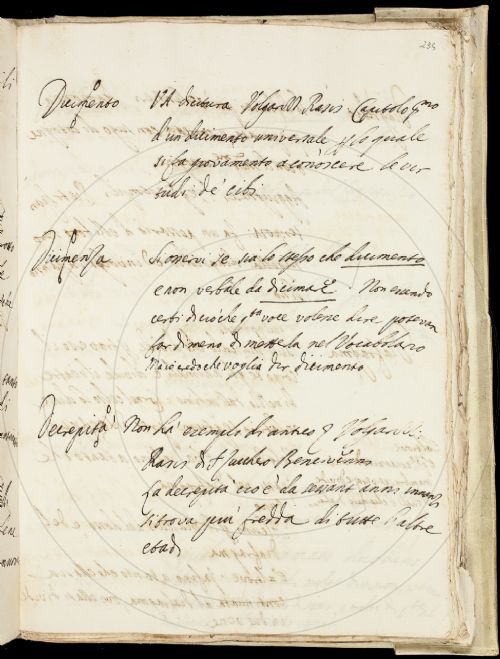 234
Dicimento Va dicitura Volgar. Rasis. Capitolo
d'un dicimento universale p lo quale
si fa provamento a conoscere le ver
tudi de cibi
Dicimenza Si osservi se sia lo stesso che dicimento
e non verbale da
certi di ciò che voce volesse dire potevan
far di meno di metterla nel Vocabolario
Ma io credo che voglia dir dicimento
Decrepità Non ha esempio di antico Volgar.
Rasis di
La decrepità cioè da sessant anni innanzi
si trova più fredda di tutte l'altre
etadi